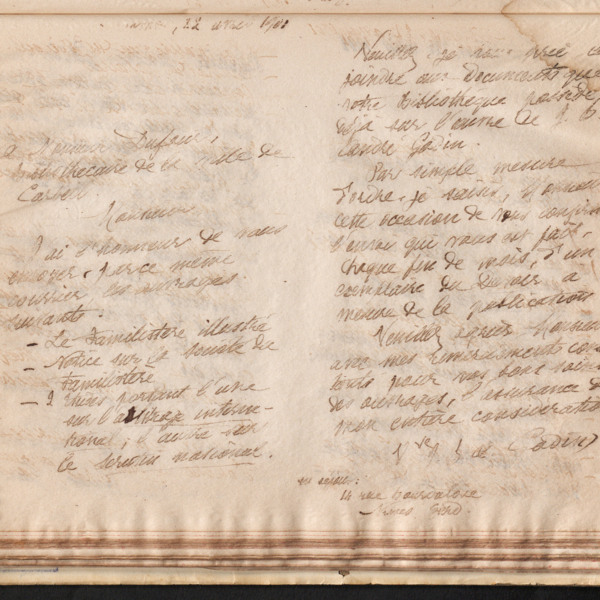 22 avril
a Monsieur Dufour,
Bibliothécaire de la Ville de
Corbeil
Monsieur
J'ai l'honneur de vous
envoyer, par ce même
courrier, les ouvrages
suivants:
- Le Familistère illustré
- Notice sur la société du
Familistère
- 2 portant l'une
sur l'arbitrage interna-
tional, l'autre sur
le scrutin national.
Veuillez je vous prie
joindre aux documents que
votre bibliothèque possède
déjà sur l'œuvre de J. B.
André Godin.
Par simple mesure
d'ordre, je saisis, Monsieur
cette occasion de vous confirmer
l'envoi qui vous est fait,
chaque fin de mois, d'un
exemplaire du Devoir a
mesure de la publication
Veuillez agréer Monsieur
avec mes remerciements
pour vos bons soins
des ouvrages, l'assurance de
mon entière considération
Vve Godin
14 rue Bourdaloue
Nîmes Gard.